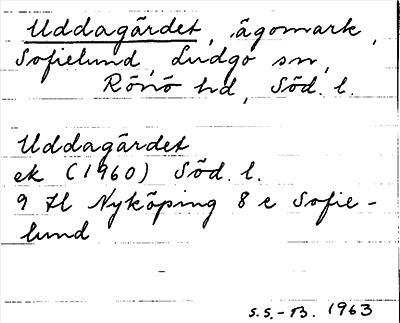 Uddagärdet, ägomark,
Sofielund, Ludgo sn,
Rönö hd, Söd. l.
Uddagärdet
ek (1960) Söd. l.
9 H1 Nyköping 8 e Sofie-
lund
S.S.-B. 1963